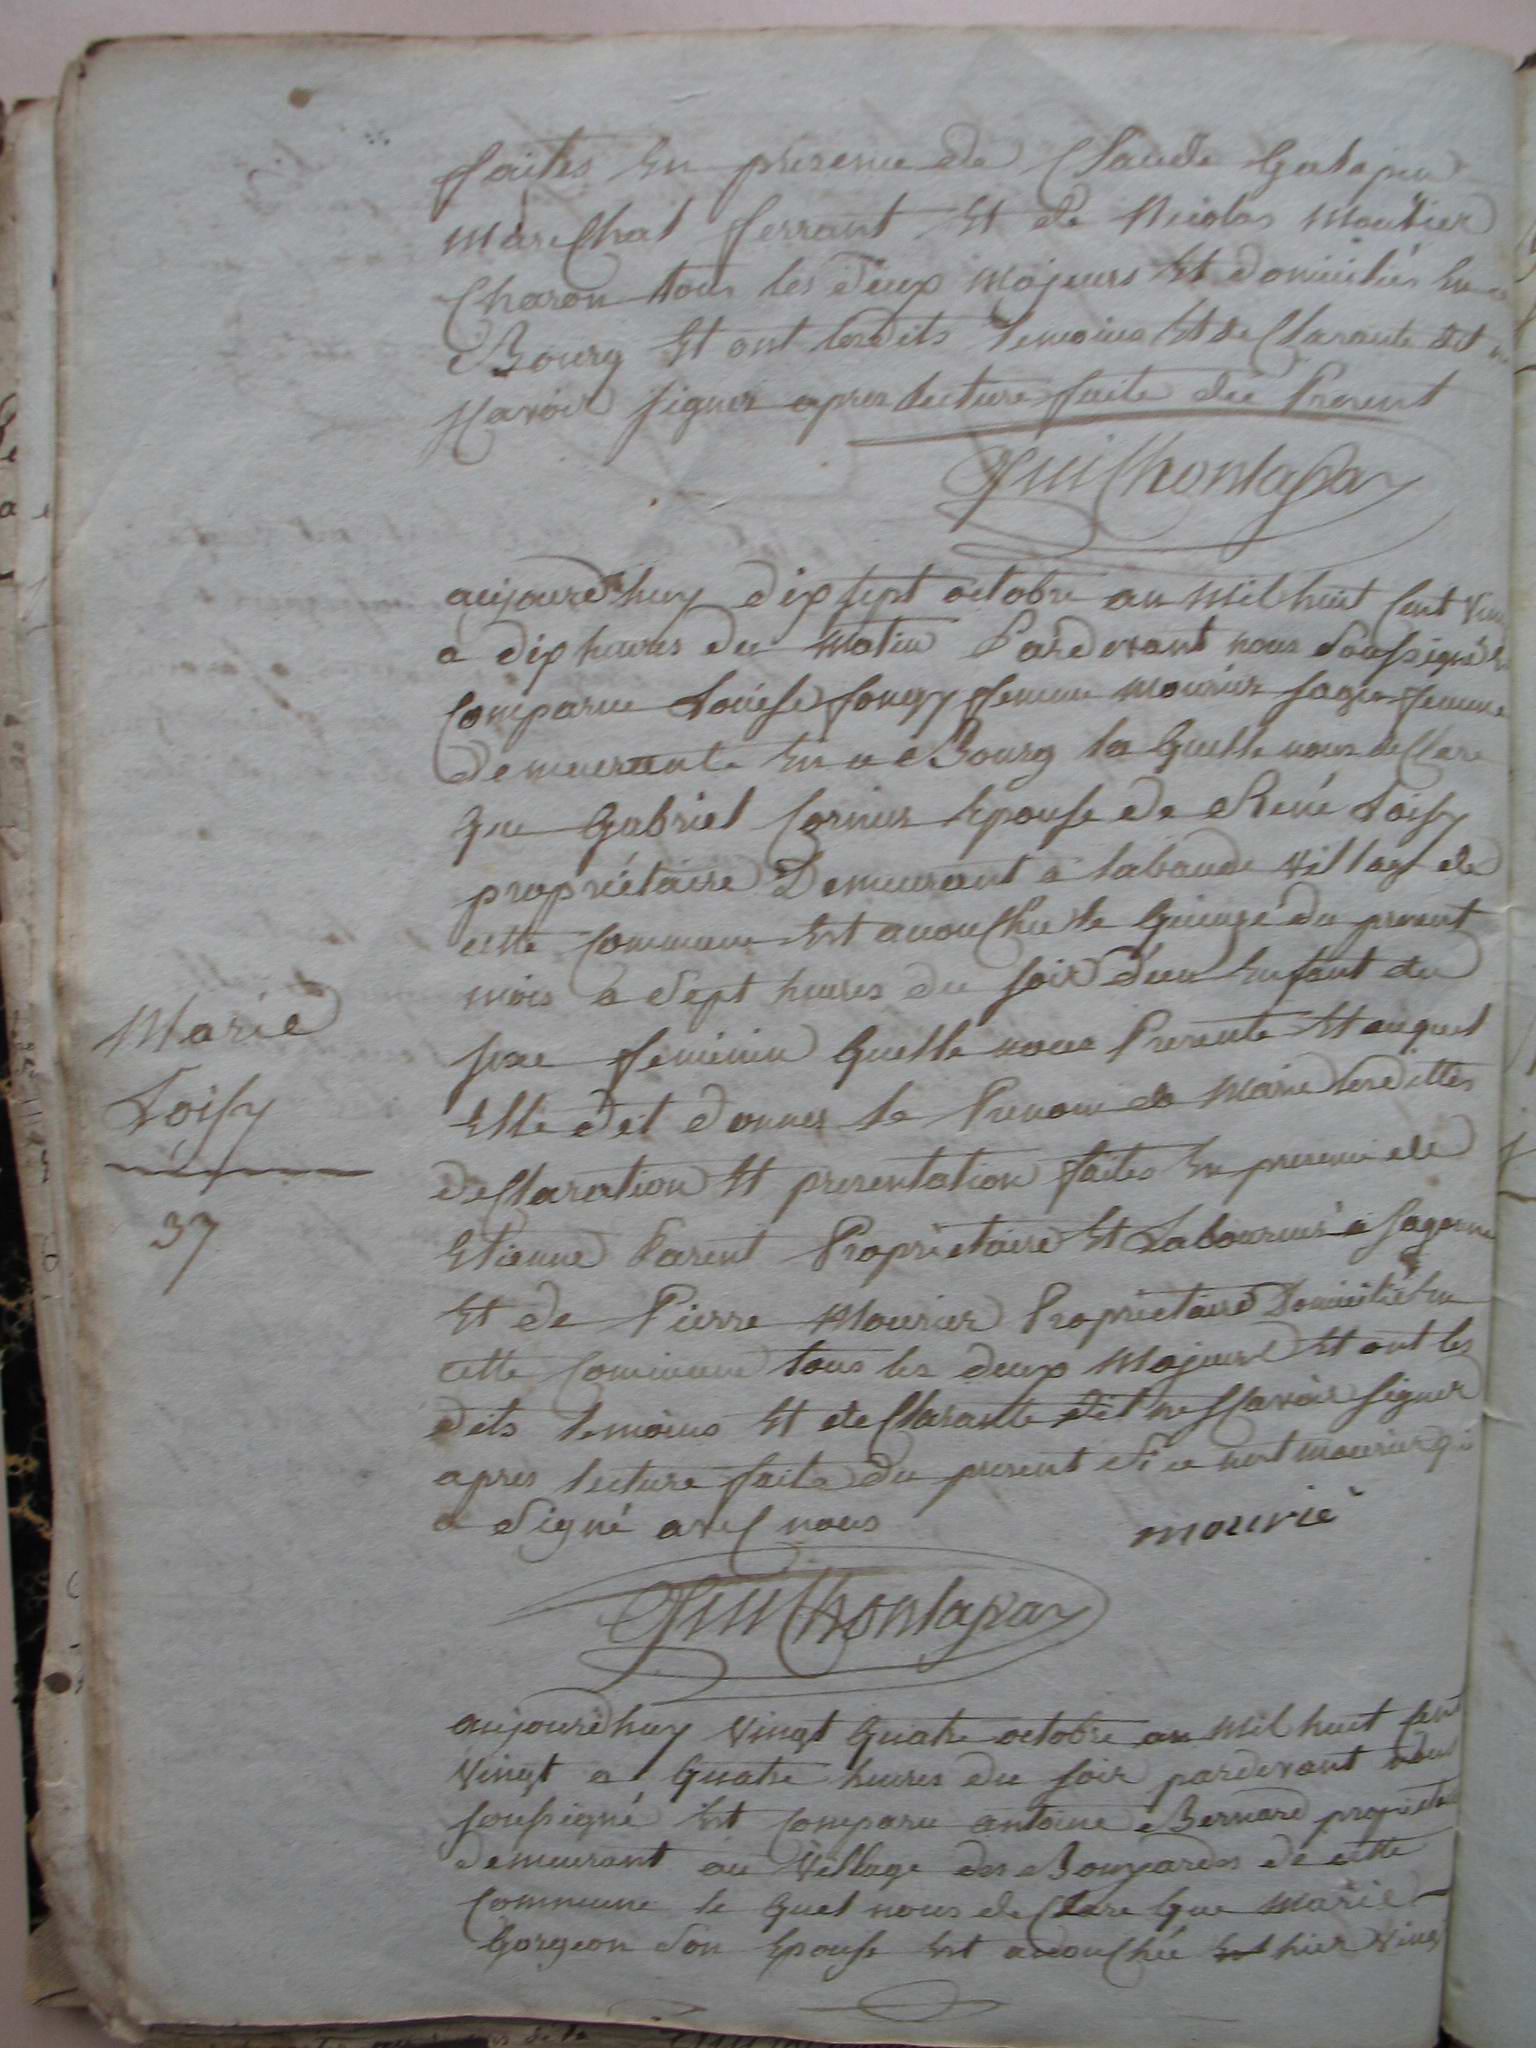 faites En presence de Claude
marechal ferrant Et de Nicolas moutier
Charon tous les deux majeurs Et domiciliés En ce
Bourg Et ont lesdits temoins Et declarante dit ne
scavoir signer apres lecture faite du Present
aujourdhuy dix sept octobre an mil huit cent vin
a dix heures du matin Pardevant nous soussigné Est
Comparue Louise femme mourier sage femme
demeurante En ce Bourg la quelle nous declare
que Gabriel Cornier Epouse de René Loisy
propriétaire Demeurant a labaude village de
cette commune Est accouchée le quinze du present
mois a sept heures du soir d'un Enfant du
sexe feminin quelle nous Presente Et auquel
Elle dit donner le Prenom de Marie lesdittes
Marie
Loisy
37
declaration Et presentation faites En presence de
Etienne Parent Propriétaire Et Laboureur a sagonne
Et de Pierre Mourier Propriétaire Domicilié En
cette commune tous les deux majeurs Et ont les
dits temoins Et declarante dit ne scavoir signer
apres lecture faite du present si ce nest mourier qui
a signé avec nous
mourié
aujourdhuy vingt quatre octobre an mil huit cent
vingt a quatre heures du soir pardevant nous
soussigné Est comparu antoine Bernard propriétaire
demeurant au village des de cette
Commune le quel nous declare que marie
Gorgeon son Epouse Est accouchée hier vingt